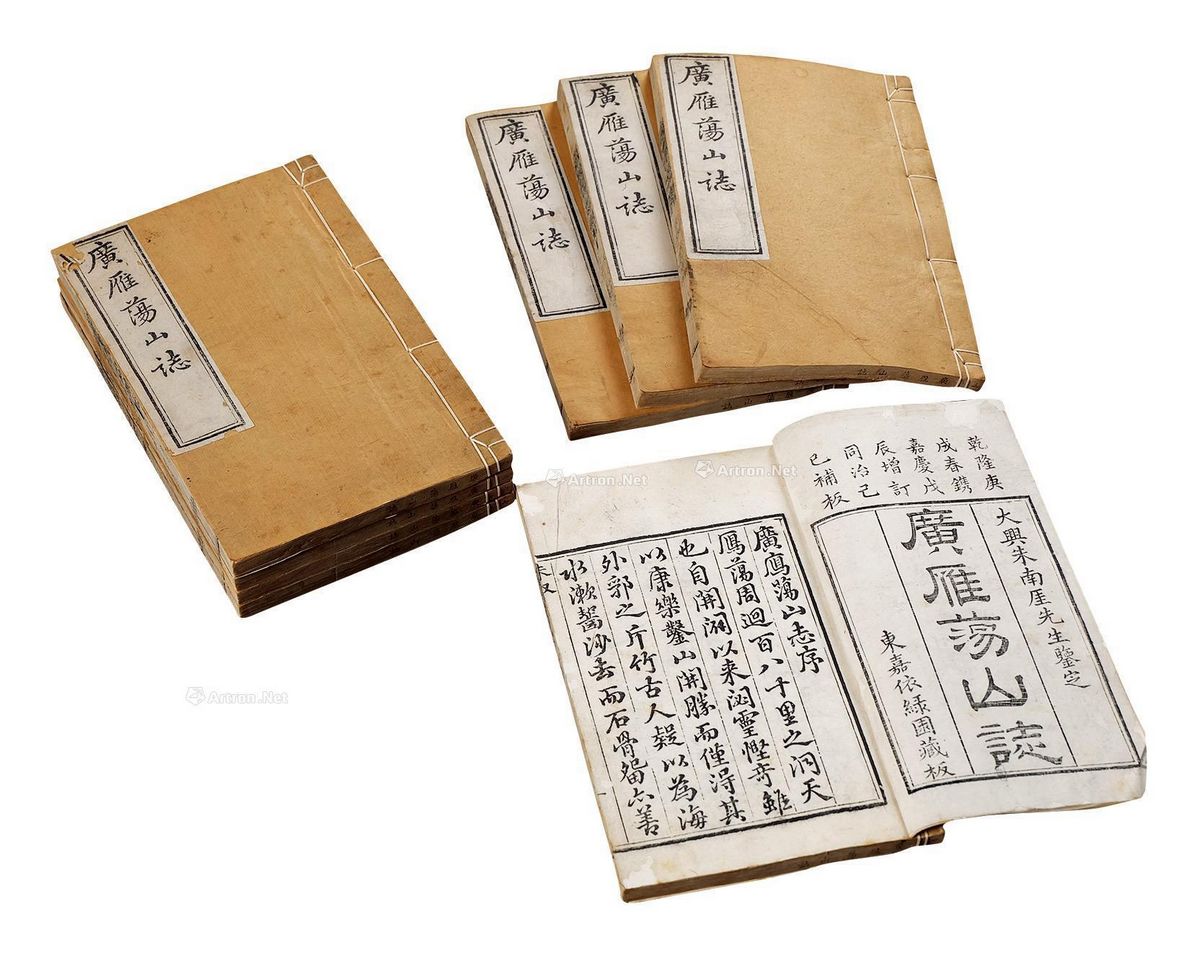 廣雁蕩山誌
廣雁蕩山誌
廣雁蕩山誌
廣雁蕩山誌
乾隆庚
戍春鐫
嘉慶戊
辰增訂
同治己
巳補板
大興朱南厓先生鑒定
廣雁蕩山誌
東嘉依綠園藏板
廣鴈蕩山志序
鴈蕩周迴百八十里之洞天
也自開闢以来泌靈慳奇雖
以康樂鑿山開勝而僅淂其
外郛之斤竹古人疑以為海
水漱齧沙去而石骨留六善
Artron.Net
Artron.Net
Artron.Net